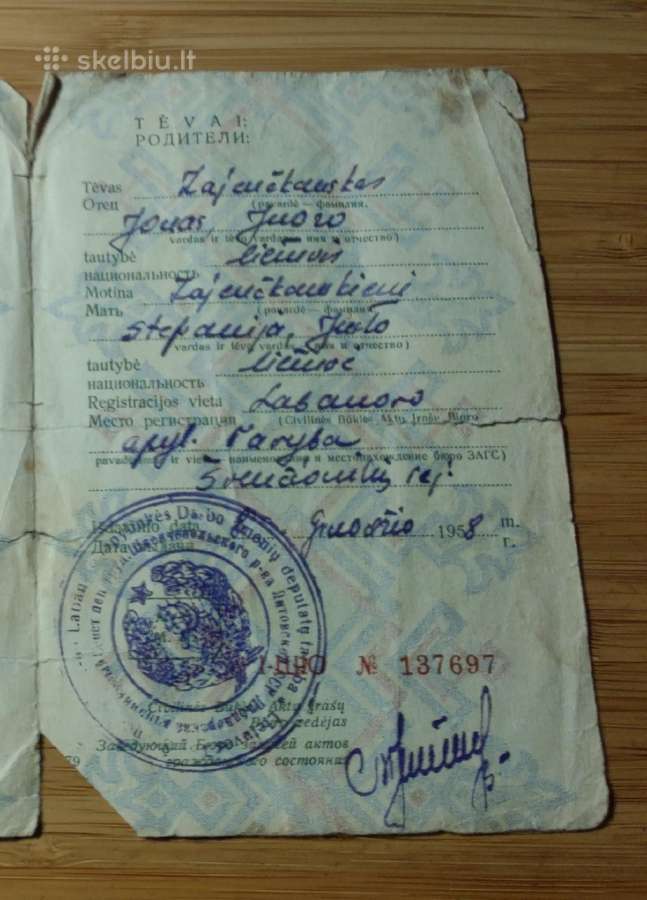 skelbiu.lt
TĖVAI:
РОДИТЕЛИ:
Tėvas Zajenčkauskas
Отец (pavardė — фамилия,
Jonas, Juozo
vardas ir tėvo vardas имя и отчество)
tautybė lietuvis
национальность
Motina Zajenčkauskienė
Мать (pavardė — фамилия,
Stepanija,
vardas ir tėvo vardas имя и отчество)
tautybė lietuvė
национальность
Registracijos vieta Labanoro
Место регистрации (Civilinės Būklės Aktų Įrašų Biuro
apyl. Taryba,
pavadinimas ir vieta наименование и местонахождение бюро ЗАГС)
Švenčionėlių raj.
Išdavimo data Gruodžio 1958 m.
Дата выдачи г.
№ 137697
Civilinės Būklės Aktų Įrašų
Biuro vedėjas
Заведующий Бюро записей актов
гражданского состояния